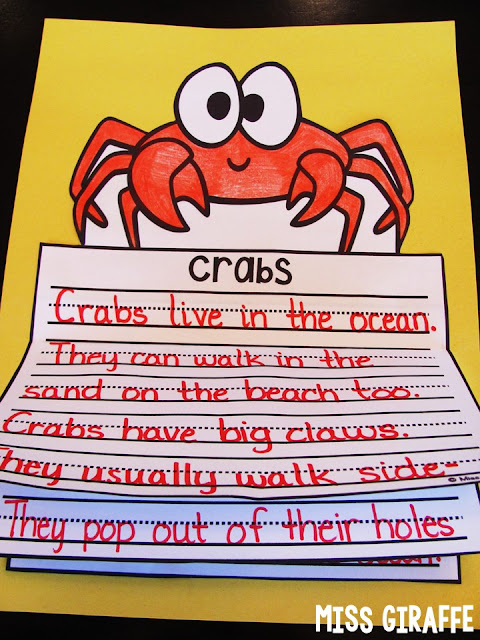 Crabs
Crabs live in the ocean.
They can walk in the
sand on the beach too.
Crabs have big claws.
They usually walk side-
© Miss
They pop out of their holes
ocean.
MISS GIRAFFE